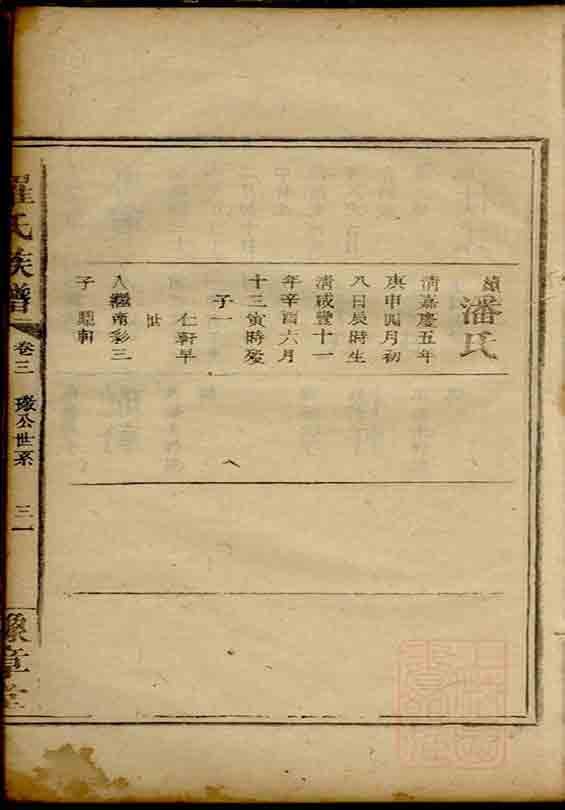 續
潘氏
清嘉慶五年
庚申四月初
八日辰時生
清咸豐十一
年辛酉六月
十三寅時歿
子一
仁軒早
世
入繼南彩三
子 軒
羅氏族譜
卷三
璇公世系
三一
豫章堂